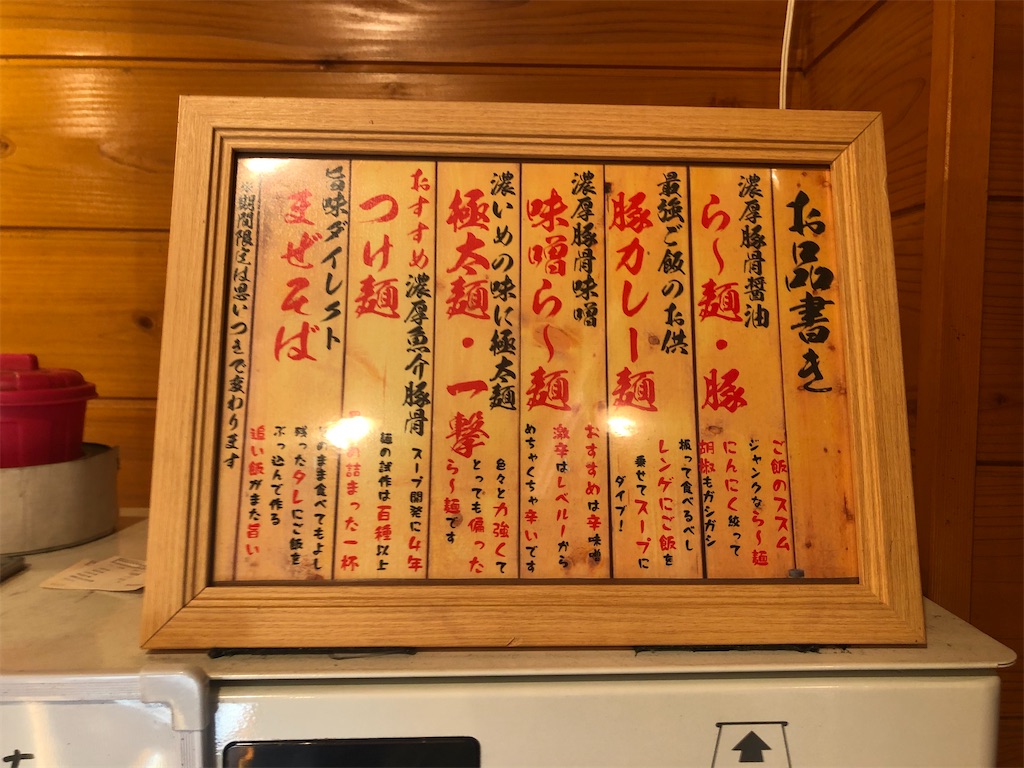 お品書き
濃厚豚骨醤油
ら〜麺・豚
ご飯のススム
ジャンクなら〜麺
にんにく絞って
胡椒もガシガシ
最強ご飯のお供
豚カレー麺
振って食べるべし
レンゲにご飯を
乗せてスープに
ダイブ!
濃厚豚骨味噌
味噌ら〜麺
おすすめは辛味噌
激辛はレベル一から
めちゃくちゃ辛いです
濃いめの味に極太麺
極太麺・一撃
色々と力強くて
とっても偏った
ら〜麺です
おすすめ 濃厚魚介豚骨
つけ麺
スープ開発に4年
麺の試作は百種以上
の詰まった一杯
旨味ダイレクト
まぜそば
そのまま食べてもよし
残ったタレにご飯を
ぶっ込んで作る
追い飯がまた旨い
※期間限定は思いつきで変わります